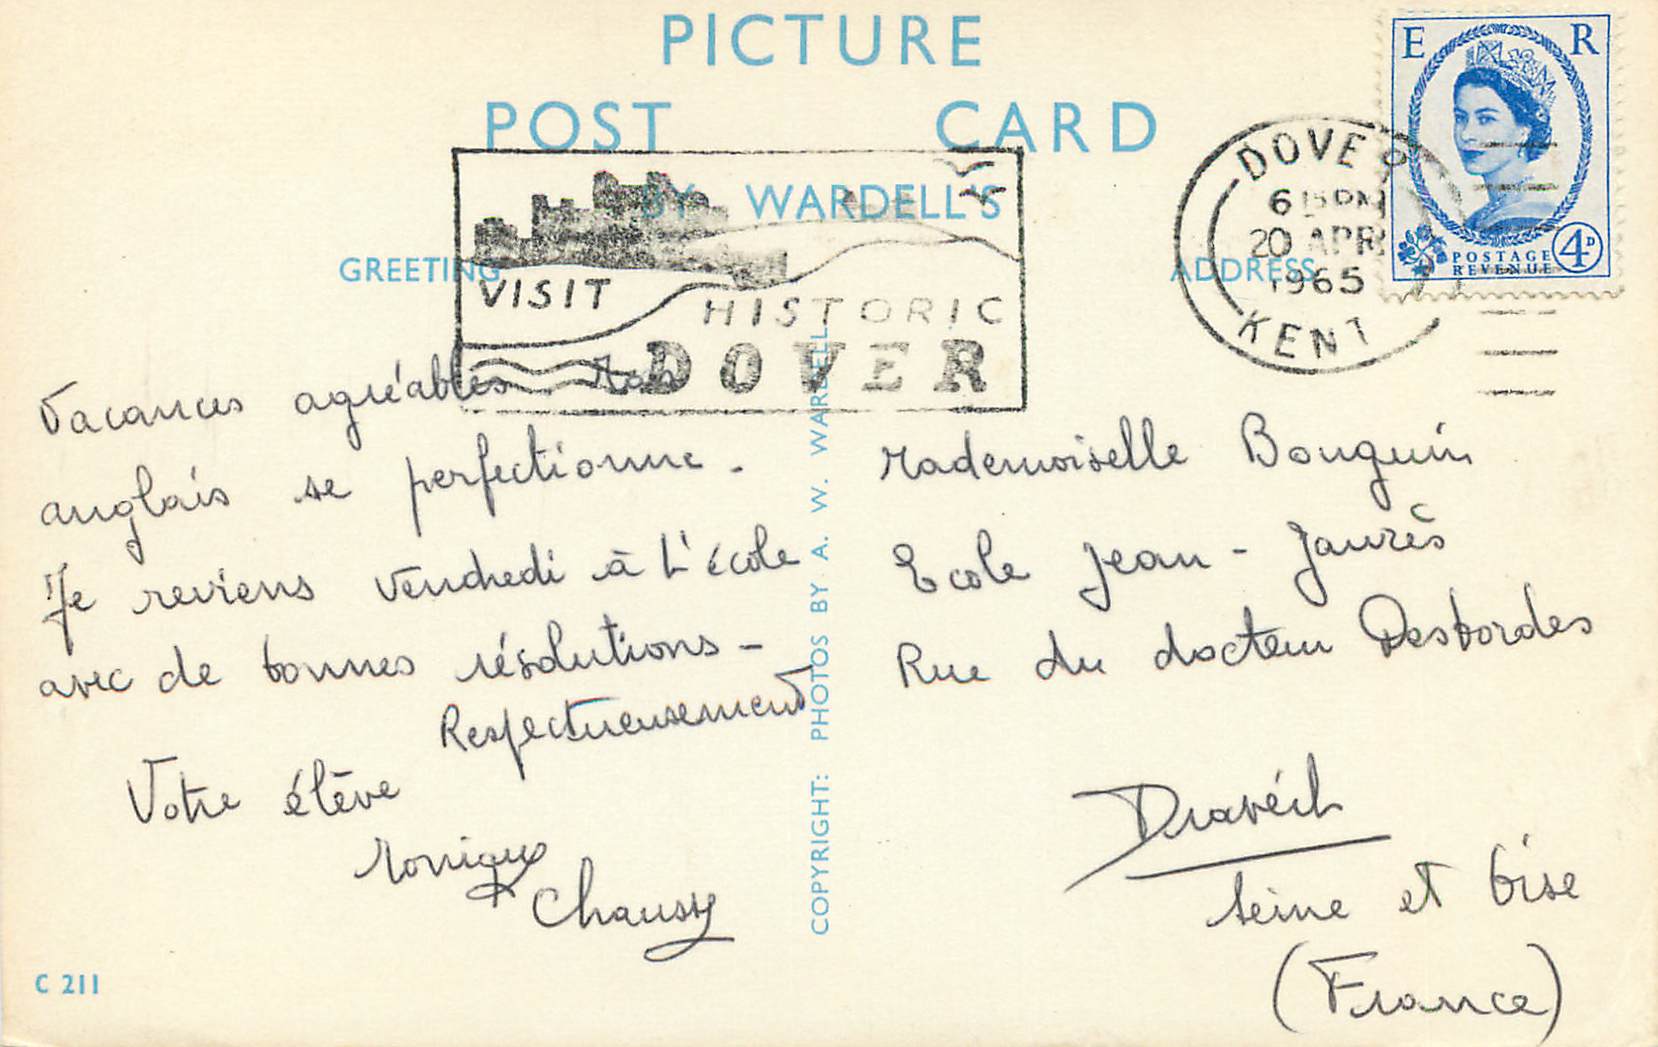 PICTURE
POST CARD
BY WARDELL'S
GREETING
ADDRESS
E R
POSTAGE
REVENUE
4D
DOVER
6 15 PM
20 APR
1965
KENT
VISIT
HISTORIC
DOVER
Vacances agréables Mon
anglais se perfectionne.
Je reviens vendredi à l'école
avec de bonnes résolutions -
Respectueusement
Votre élève
Monique
Chaussy
COPYRIGHT: PHOTOS BY A. W. WARDELL.
Mademoiselle Bouquin
Ecole Jean - Jaurès
Rue du docteur Desbordes
Draveil
Seine et Oise
(France)
C 211